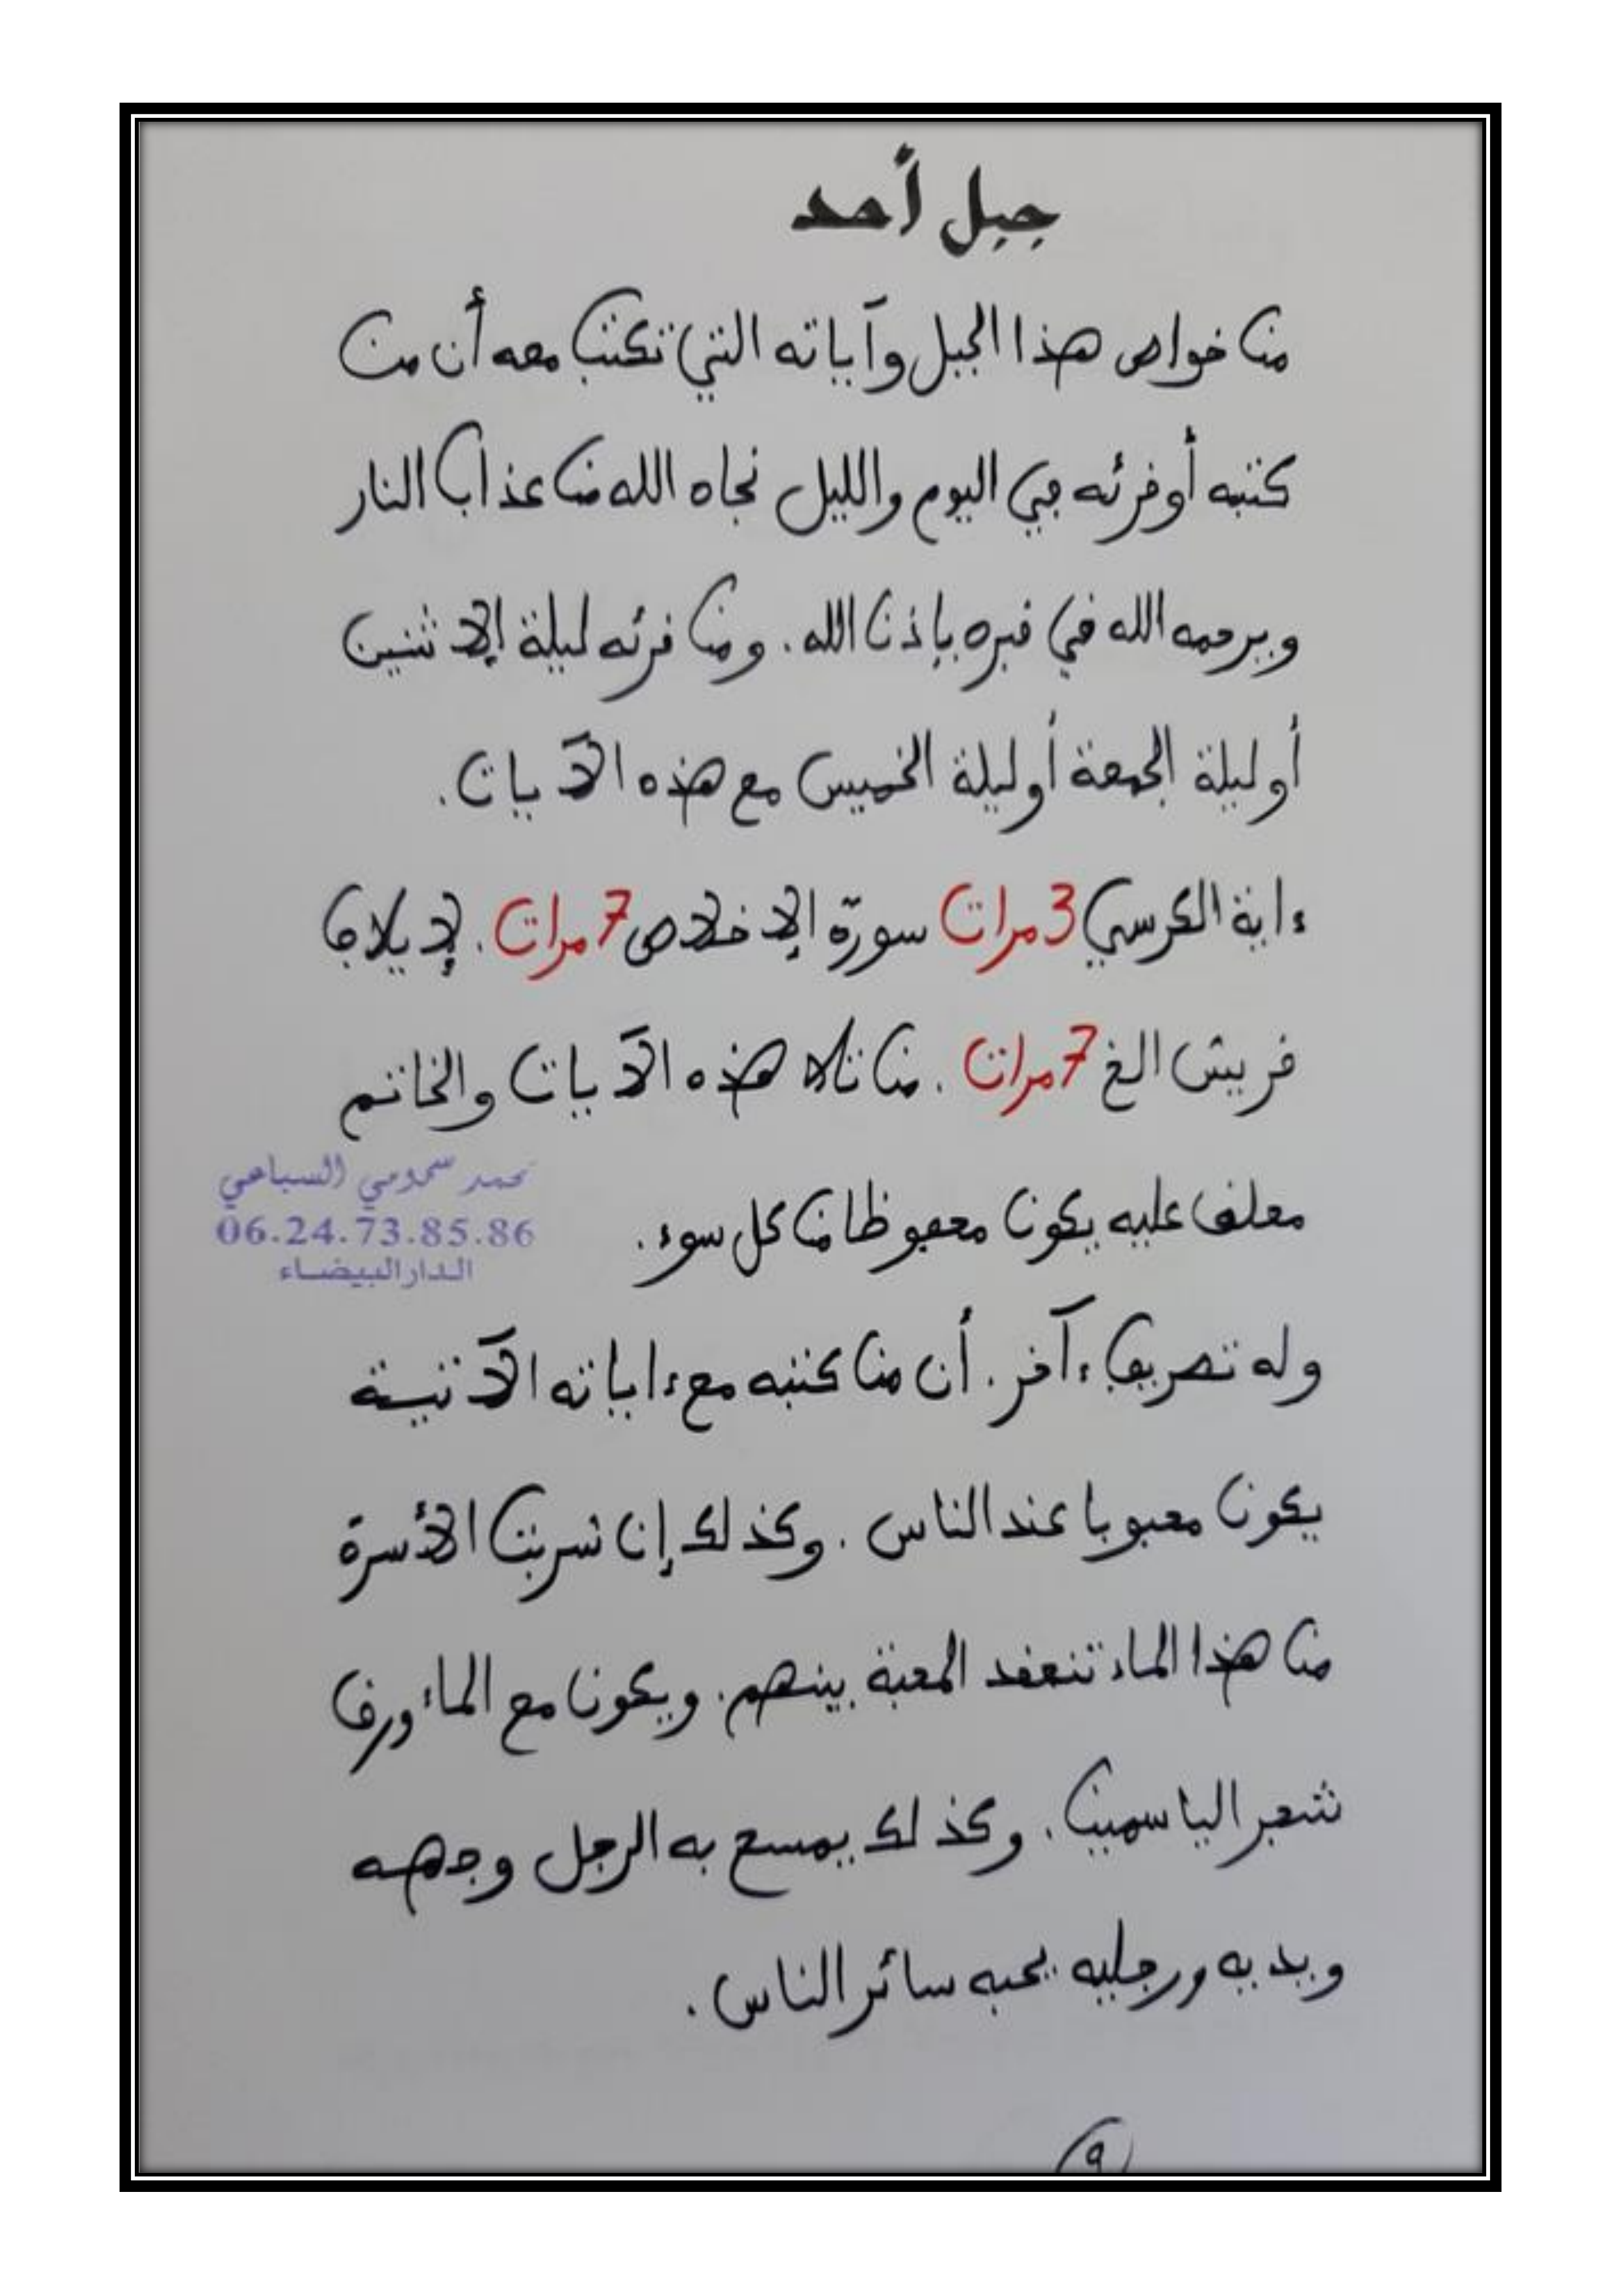 جبل أحد
من خواص هذا الجبل وآياته التي تكتب معه أن من
كتبه أو قرئه في اليوم والليل نجاه الله من عذاب النار
ويرحمه الله في قبره بإذن الله. ومن قرئه ليلة الإثنين
أو ليلة الجمعة أو ليلة الخميس مع هذه الآيات.
ءاية الكرسي 3 مرات سورة الإخلاص 7 مرات. لإيلاف
قريش الخ 7 مرات. من تلاه هذه الآيات والخاتم
معلق عليه يكون محفوظا من كل سوء.
محمد سحومي السباعي
06.24.73.85.86
الدار البيضاء
وله تصريف ءآخر. أن من كتبه مع ءاياته الآتية
يكون محبوبا عند الناس. وكذلك إن شربت الأسرة
من هذا الماء تنعقد المحبة بينهم. ويكون مع الماء ورق
شجر الياسمين. وكذلك يمسح به الرجل وجهه
ويديه ورجليه يحبه سائر الناس.
9